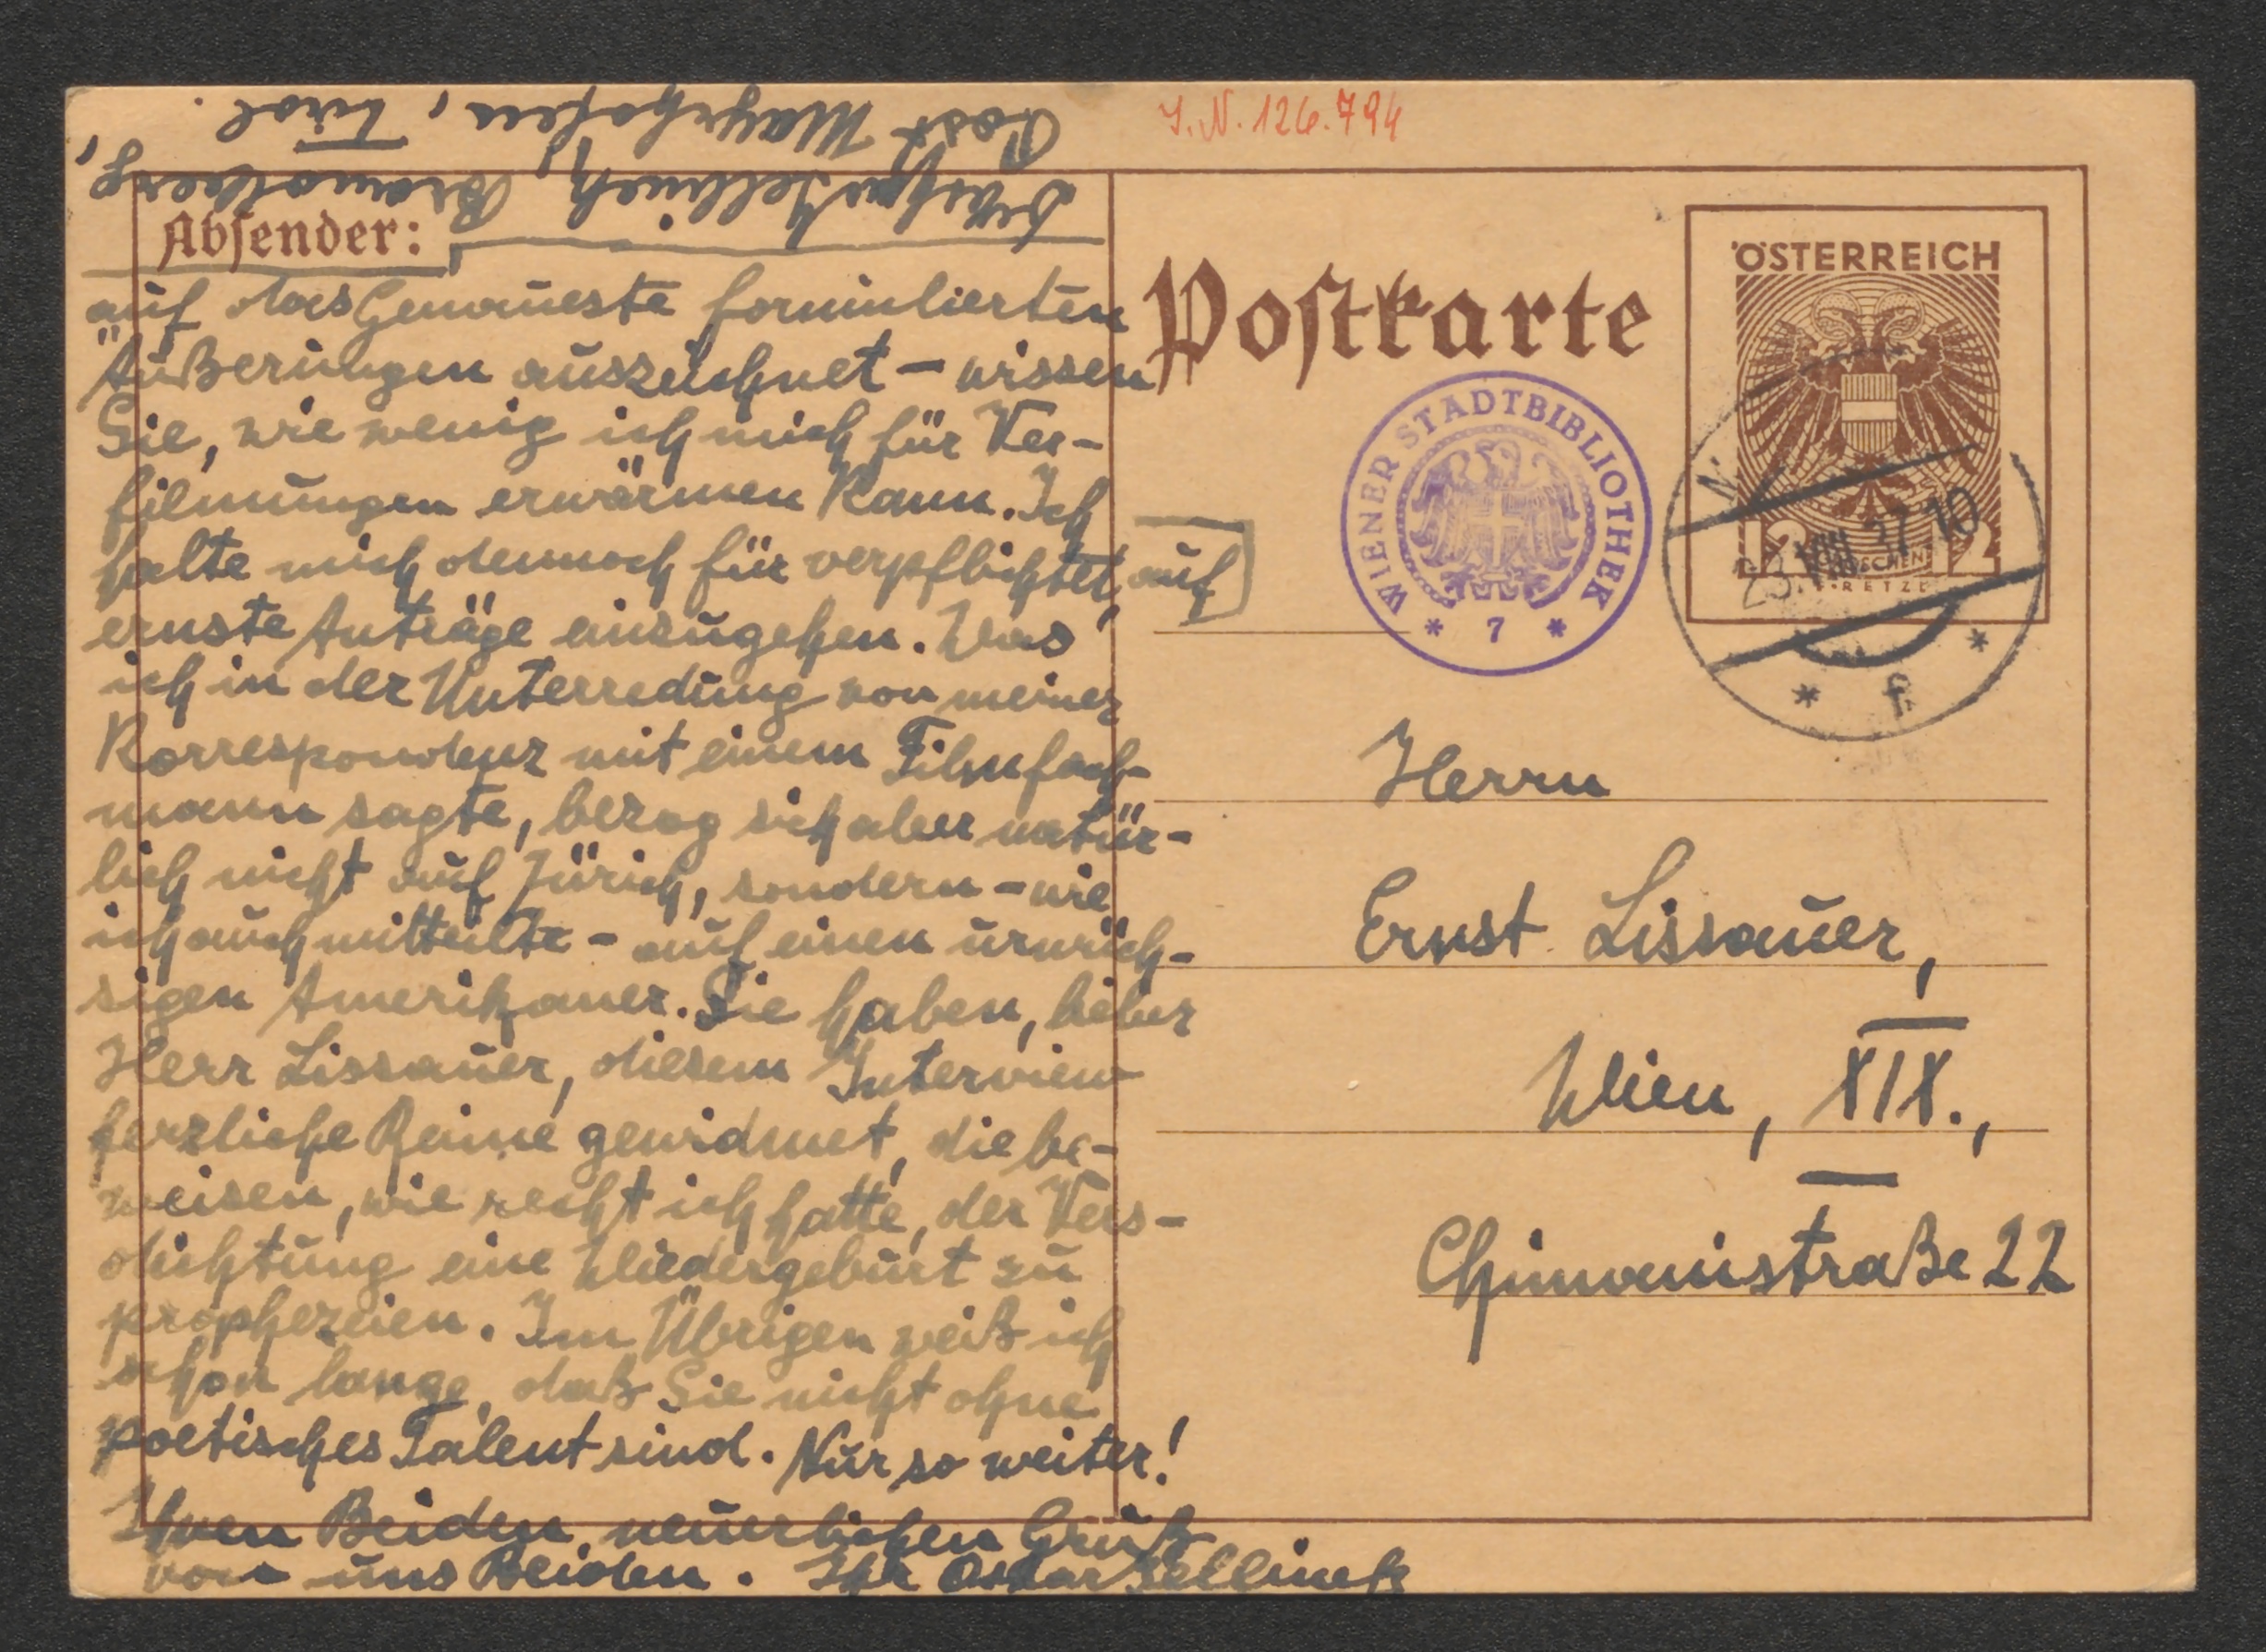 J.N. 126.794
Oskar Jellinek, Bramberg,
Post Mayrhofen, Tirol.
Absender:
auf das Genaueste formulierten
Äußerungen auszeichnet – wissen
Sie, wie wenig ich mich für Ver-
filmungen erwärmen kann. Ich
halte mich dennoch für verpflichtet, auf
ernste Anträge einzugehen. Was
ich in der Unterredung von meiner
Korrespondenz mit einem Filmfach-
mann sagte, bezog sich aber natür-
lich nicht auf Zürich, sondern – wie
ich auch mitteilte – auf einen urwüch-
sigen Amerikaner. Sie haben, lieber
Herr Lissauer, diesem Interview
herzliche Reime gewidmet, die be-
weisen, wie recht ich hatte, der Vers-
dichtung eine Wiedergeburt zu
prophezeien. Im Übrigen weiß ich
schon lange, daß Sie nicht ohne
poetisches Talent sind. Nur so weiter!
Ihnen Beiden neuerlichen Gruß
von uns Beiden. Ihr Oskar Jellinek
Postkarte
ÖSTERREICH
12 GROSCHEN 12
WIENER STADTBIBLIOTHEK
* 7 *
23.VIII.37 10
* f *
Herrn
Ernst Lissauer,
Wien, XIX.,
Chimanistraße 22